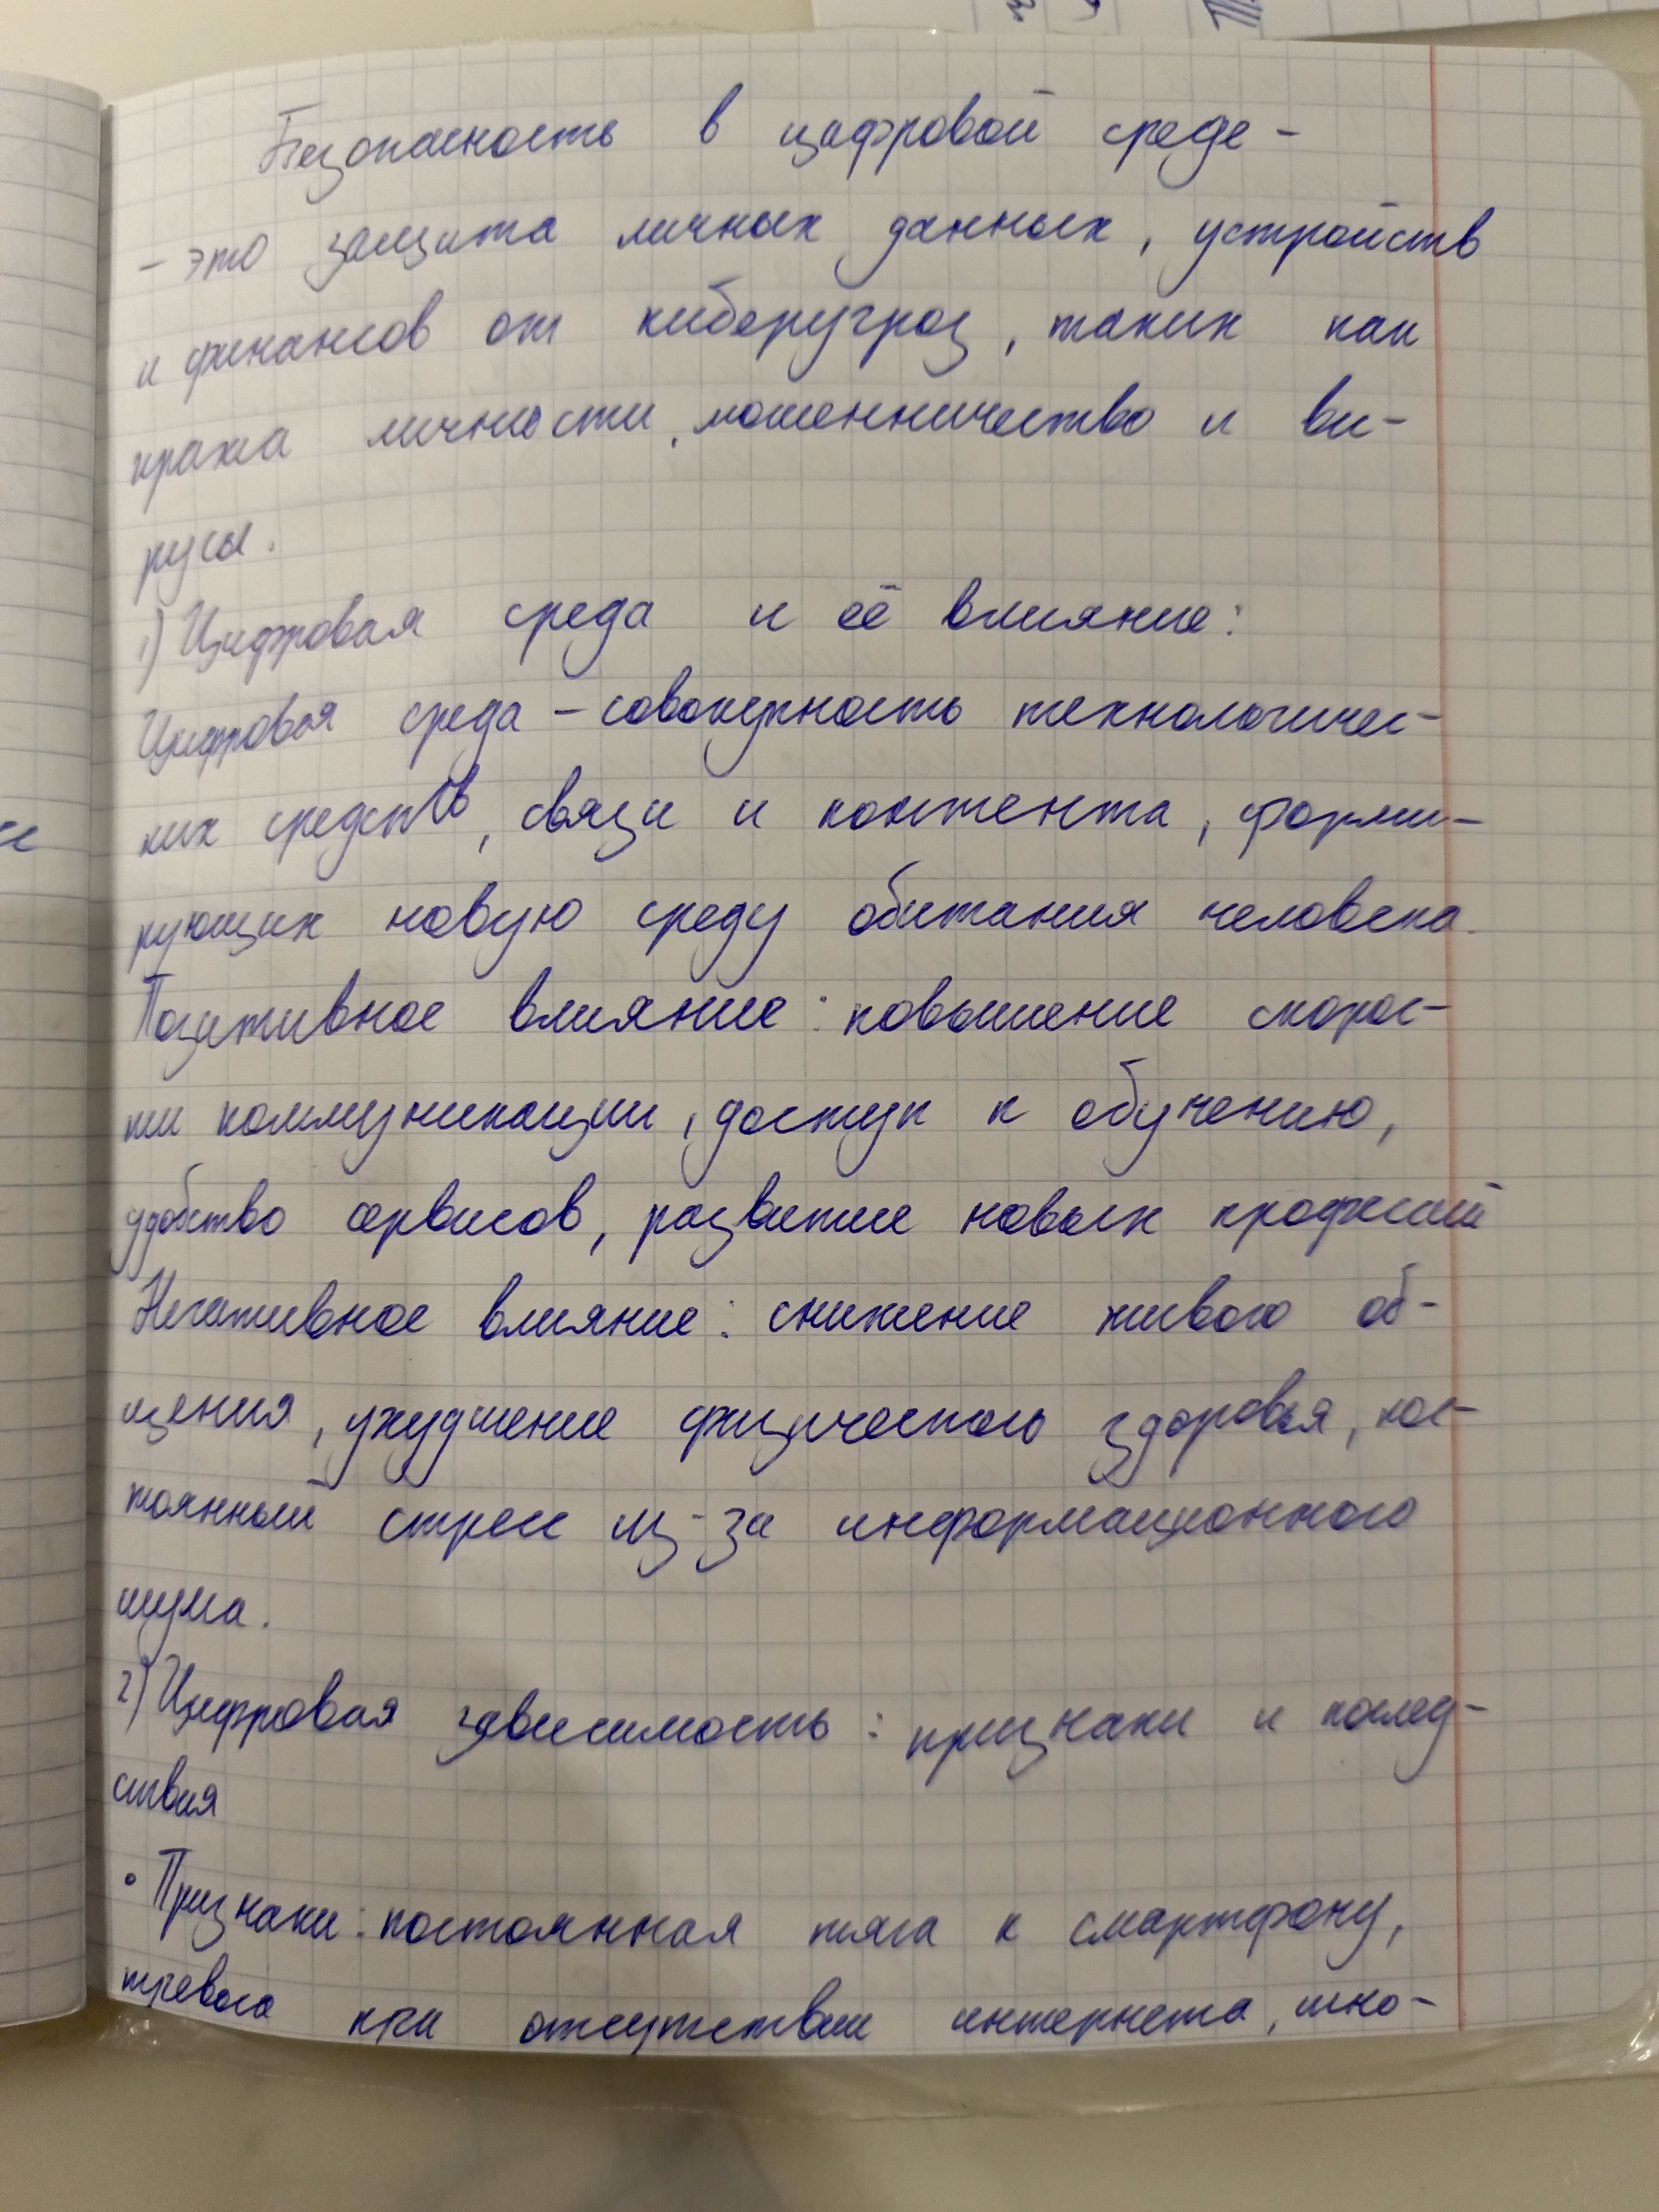 Безопасность в цифровой среде -
- это защита личных данных, устройств
и финансов от киберугроз, таких как
кража личности, мошенничество и ви-
русы.
1) Цифровая среда и её влияние:
Цифровая среда - совокупность технологичес-
ких средств, связи и контента, форми-
рующих новую среду обитания человека.
Позитивное влияние: повышение скорос-
ти коммуникации, доступ к обучению,
удобство сервисов, развитие новых профессий
Негативное влияние: снижение живого об-
щения, ухудшение физического здоровья, пос-
тоянный стресс из-за информационного
шума.
2) Цифровая зависимость: признаки и послед-
ствия
• Признаки: постоянная тяга к смартфону,
тревога при отсутствии интернета,